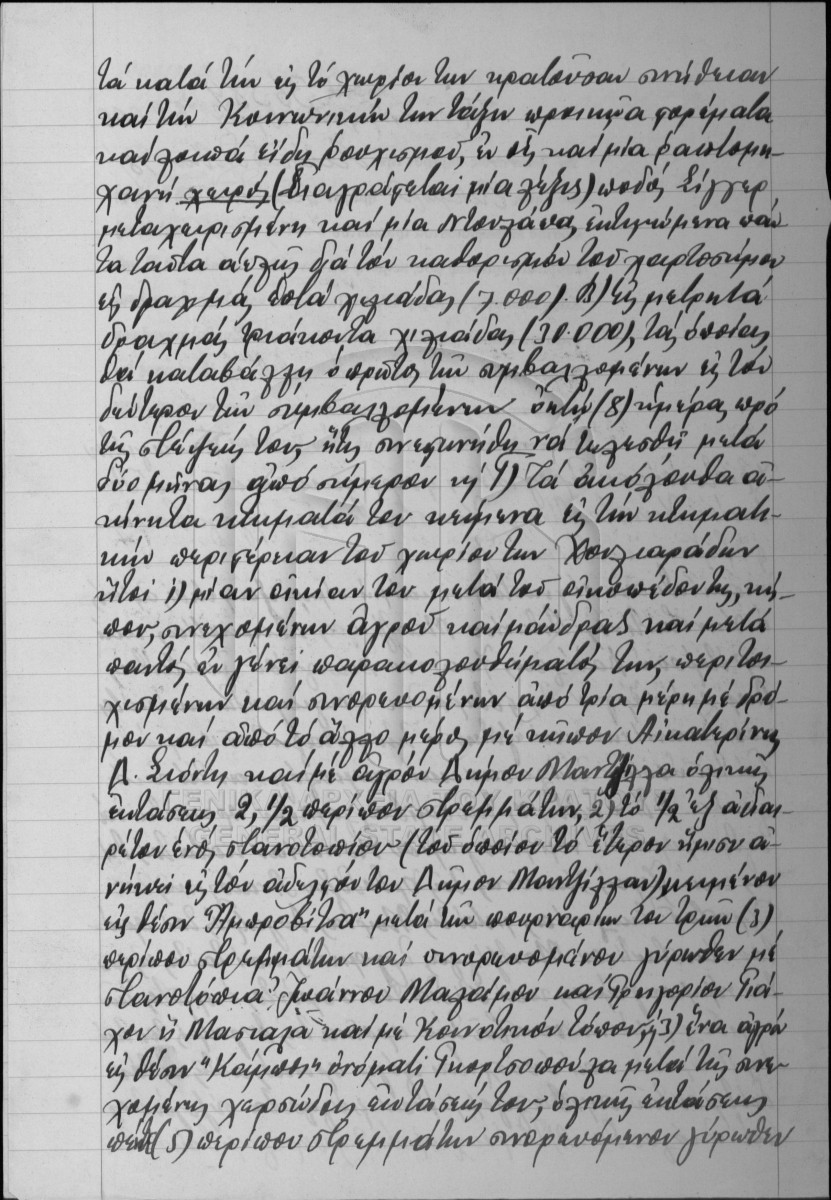 τά κατά τήν εἰς τό χωρίον των κρατοῦσαν συνήθειαν
καί τήν Κοινωνικήν των τάξιν προικῷα φορέματα
καί λοιπά εἴδη ρουχισμοῦ, ἐν οἷς καί μία ραπτομη-
χανή χειρός (διαγράφεται μία λέξις) ποδός Σίγγερ
μεταχειρισμένη καί μία ντουλάπα, ἐκτιμώμενα πάν-
τα ταῦτα ἁπλῶς διά τόν καθορισμόν τοῦ χαρτοσήμου
εἰς δραχμάς ἑπτά χιλιάδας (7.000). Β) εἰς μετρητά
δραχμάς τριάκοντα χιλιάδας (30.000), τάς ὁποίας
θά καταβάλλῃ ὁ πρῶτος τῶν συμβαλλομένων εἰς τόν
δεύτερον τῶν συμβαλλομένων ὀκτώ (8) ἡμέρας πρό
τῆς στέψεώς των, ἥτις συνεφωνήθη νά τελεσθῇ μετά
δύο μῆνας ἀπό σήμερον καί Γ) Τά ἀκόλουθα ἀ-
κίνητα κτήματά του κείμενα εἰς τήν κτηματι-
κήν περιφέρειαν τοῦ χωρίου των Χουλιαράδων
ἤτοι 1) μίαν οἰκίαν του μετά τοῦ οἰκοπέδου της, κή-
που, συνεχομένων ἀγροῦ καί μάνδρας καί μετά
παντός ἐν γένει παρακολουθήματός των, περιτοι-
χισμένων καί συνορευομένων ἀπό τρία μέρη μέ δρό-
μον καί ἀπό τό ἄλλο μέρος μέ κῆπον Αἰκατερίνης
Δ. Σιόντη καί μέ ἀγρόν Δήμου Μαντζίλλα ὁλικῆς
ἐκτάσεως 2, 1/2 περίπου στρεμμάτων, 2) τό 1/2 ἐξ ἀδιαι-
ρέτου ἑνός στανοτοπίου (τοῦ ὁποίου τό ἕτερον ἥμισυ ἀ-
νήκει εἰς τόν ἀδελφόν του Δῆμον Μαντζίλλαν) κειμένου
εἰς θέσιν "Ἀμπροβίτσα" μετά τῶν πουρναρίων του τριῶν (3)
περίπου στρεμμάτων καί συνορευομένου γύρωθεν μέ
στανοτόπια Ἰωάννου Μαλάμου καί Γρηγορίου Γιά-
χου ἤ Μασιαλᾶ καί μέ Κοινοτικόν τόπον, καί 3) ἕνα ἀγρόν
εἰς θέσιν "Κάμπος" ὀνόματι Γκορτσοπούλα μετά τῆς συνε-
χομένης χερσώδους ἐκτάσεώς του, ὁλικῆς ἐκτάσεως
πέντε (5) περίπου στρεμμάτων συνορευόμενον γύρωθεν
ΓΕΝΙΚΑ ΑΡΧΕΙΑ ΤΟΥ ΚΡΑΤΟΥΣ
GENERAL STATE ARCHIVES